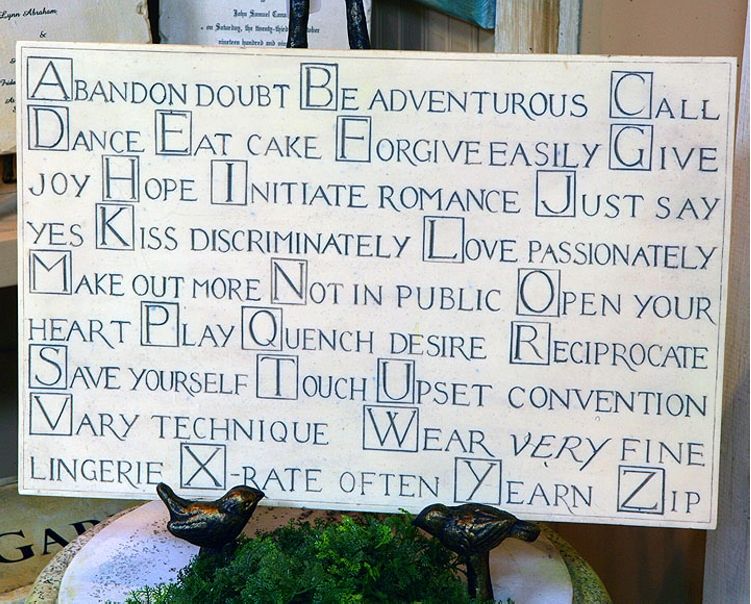 Lynn Abraham
&
John Samuel
on Saturday, the twenty-third
nineteen hundred and
ABANDON DOUBT BE ADVENTUROUS CALL
DANCE EAT CAKE FORGIVE EASILY GIVE
JOY HOPE INITIATE ROMANCE JUST SAY
YES KISS DISCRIMINATELY LOVE PASSIONATELY
MAKE OUT MORE NOT IN PUBLIC OPEN YOUR
HEART PLAY QUENCH DESIRE RECIPROCATE
SAVE YOURSELF TOUCH UPSET CONVENTION
VARY TECHNIQUE WEAR VERY FINE
LINGERIE X-RATE OFTEN YEARN ZIP
GA